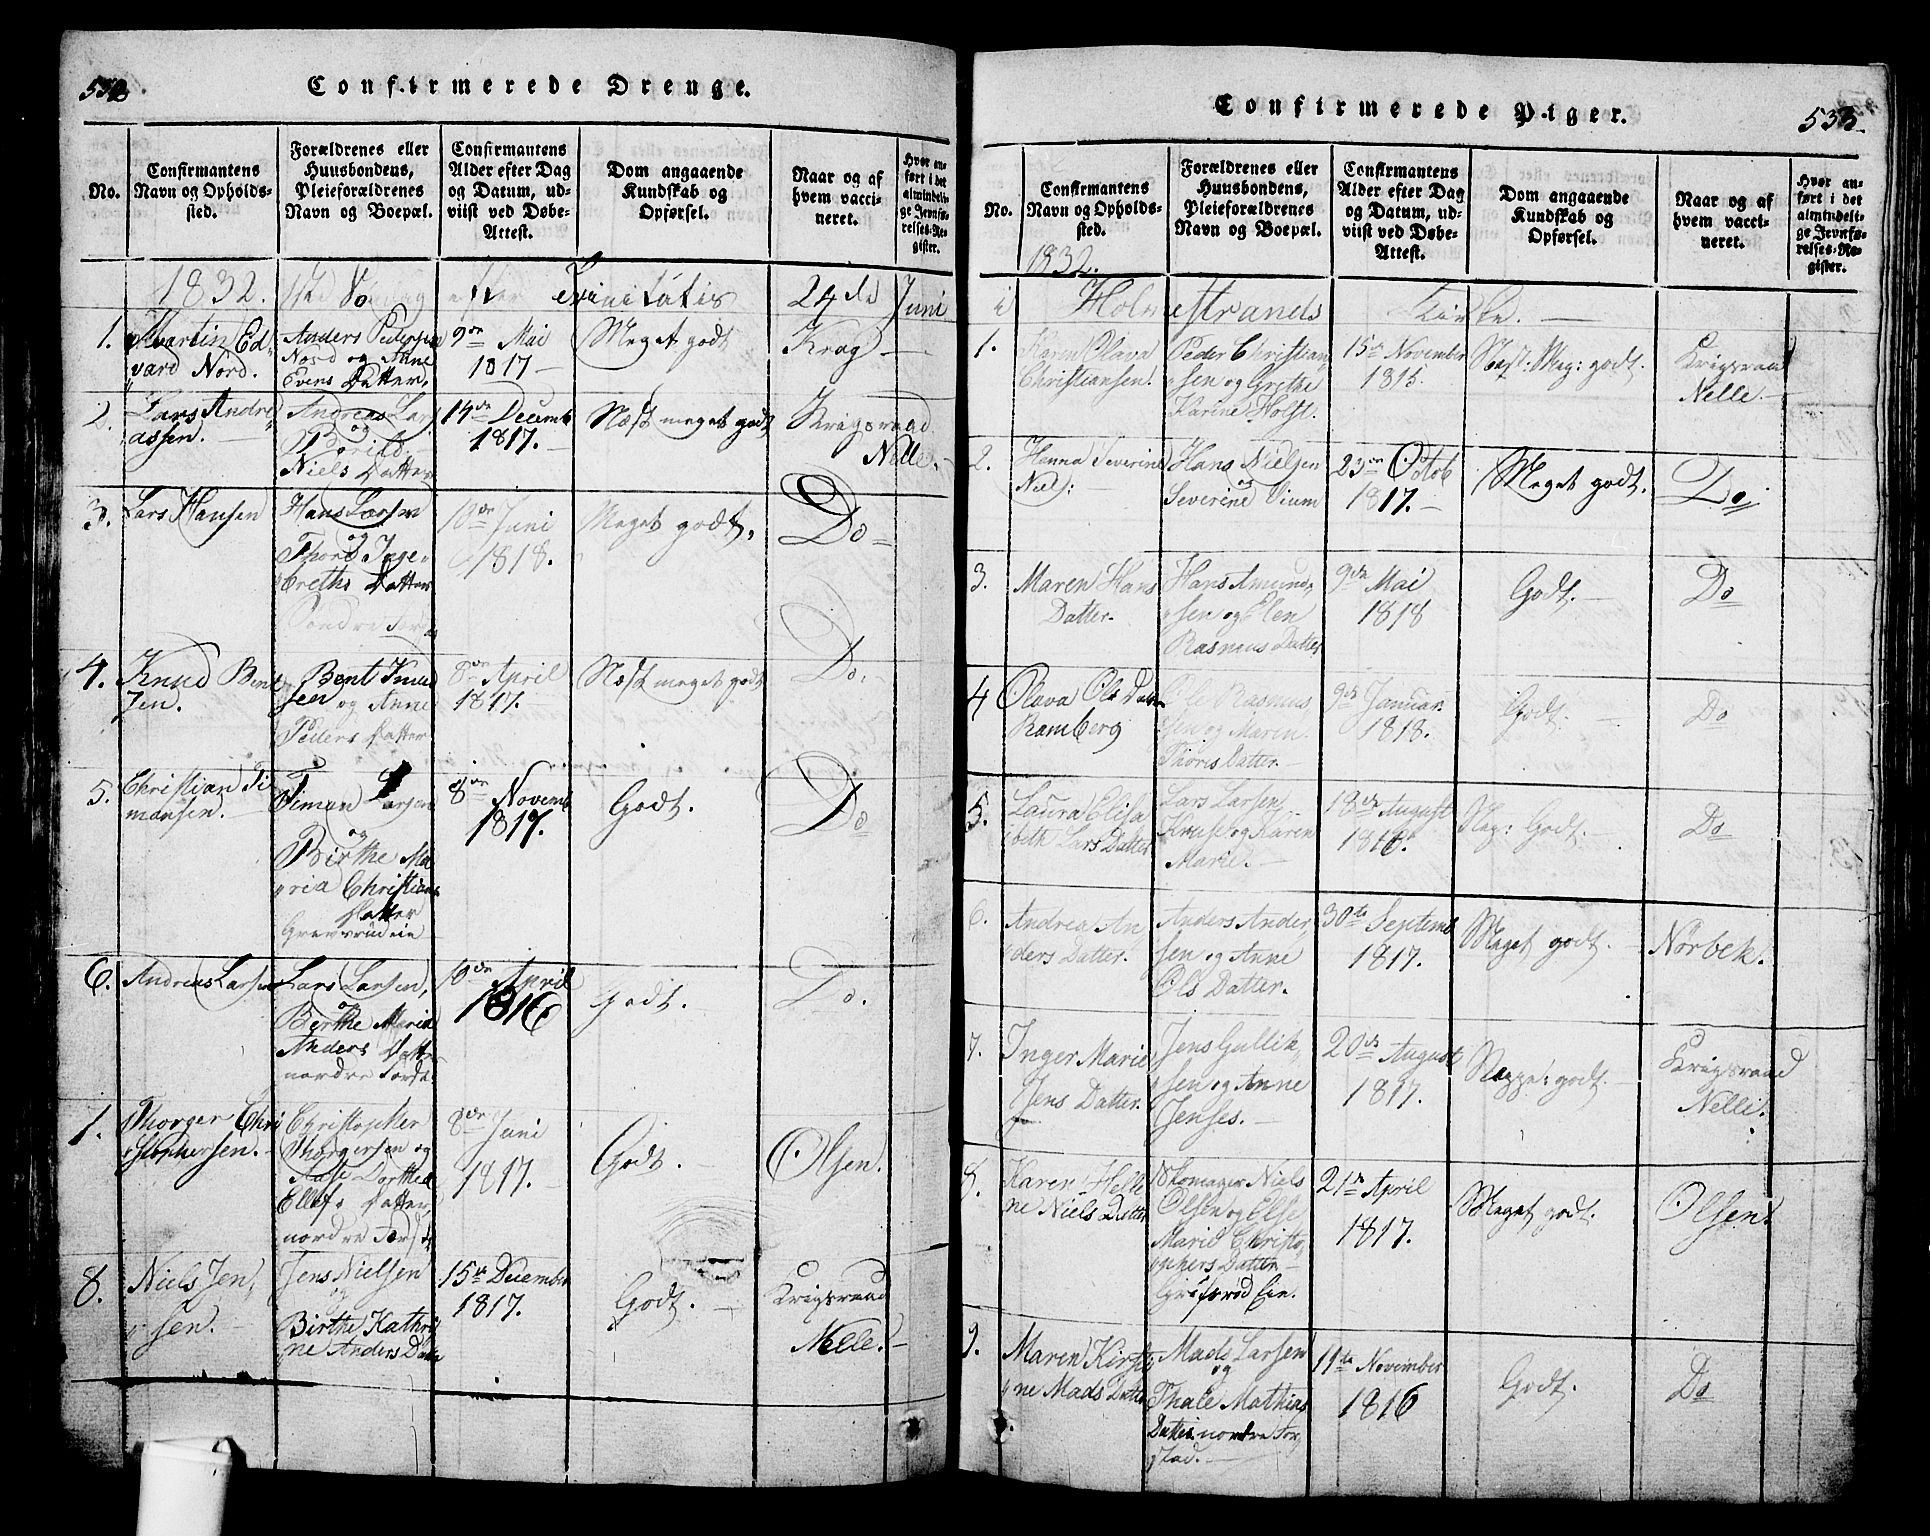 532.
Confirmerede Drenge.
No.
Confirmantens
Navn og Opholds-
sted.
Forældrenes eller
Huusbondens,
Pleieforældrenes
Navn og Boepæl.
Confirmantens
Alder efter Dag
og Datum, ud-
viist ved Døbe-
Attest.
Dom angaaende
Kundskab og
Opførsel.
Naar og af
hvem vacci-
neret.
Hvor an-
ført i det
almindeli-
ge Jevnfø-
relses-Re-
gister.
1832. efter Trinitatis 24de Juni
1.
Martin Ed-
vard Nord.
Anders Pedersen
Nord og Anne
Evens Datter.
9de Mai
1817
Meget godt
Krag
2.
Lars Andre-
assen.
Andreas Lars
og
Borild
Niels Datter
14de Decemb
1817.
Næst meget godt
Krigsraad
Nelle.
3.
Lars Hansen
Hans Larsen
og
Thore Inge-
breths Datter
10de Juni
1818.
Meget godt.
Do
4.
Knud Bent
sen.
Bent Knud
sen og Anne
Peders Datter
8de April
1817.
Næst meget godt
Do.
5.
Christian Ti
mansen.
Timan Larsen
og
Birthe Ma
ria Christians
Datter
Grevsrudeie
8de Novemb
1817.
Godt.
Do
6.
Andreas Larsen
Lars Larsen,
og
Berthe Maria
Anders Datter
nordre
10de April
1816
Godt.
Do.
7.
Thorger Chri
stophersen.
Christopher
Thorgersen og
Aase Dorthea
Ellefs Datter,
nordre
8de Juni
1817.
Godt.
Olsen.
8.
Niels Jen-
sen.
Jens Nielsen
og
Birthe Kathri
ne Anders Datter
15de December
1817.
Godt.
Krigsraad
Nelle.
533.
Confirmerede Piger.
No.
Confirmantens
Navn og Opholds-
sted.
1832.
Forældrenes eller
Huusbondens,
Pleieforældrenes
Navn og Boepæl.
Confirmantens
Alder efter Dag
og Datum, ud-
viist ved Døbe-
Attest.
Dom angaaende
Kundskab og
Opførsel.
Naar og af
hvem vacci-
neret.
Hvor an-
ført i det
almindeli-
ge Jevnfø-
relses-Re-
gister.
i Holmestrands Kirke.
1.
Karen Olava
Christiansen.
Peder Christian-
sen og Grethe
Karine Holst.
15de November
1815.
Næst. Meg: godt.
Krigsraad
Nelle.
2.
Hanna Severine
Niels:
Hans Nielsen
og
Severine Vium
23de Octob
1817.
Meget godt.
Do
3.
Maren Hans
Datter.
Hans Amund-
sen og Elen
Rasmus Datter
9de Mai
1818
Godt.
Do
4
Olava Ols Datter
Ramberg
Ole Rasmus
sen og Maren
Thores Datter
9de Januar.
1818.
Godt.
Do
5.
Laura Elisa
beth Lars Datter
Lars Larsen
Kruse og Karen
Marie.
18de August
1816.
Meg: Godt.
Do
6.
Andrea An-
ders Datter.
Anders Ander-
sen og Anne
Ols Datter.
30te Septemb
1817.
Meget godt.
Nörbek.
7.
Inger Marie
Jens Datter.
Jens Gullik-
sen og Anne
Jenses.
20de August
1817.
godt.
Krigsraad
Nelle.
8.
Karen Helle
ne Niels Datter
Skomager Niels
Olsen og Else
Marie Christo-
phers Datter
Eie.
21de April
1817.
Meget godt.
Olsen.
9.
Maren Kirsti-
ne Mads Datter
Mads Larsen
og
Thale Mathias
Datter. nordre For-
stad.
11te November
1816
Godt.
Do